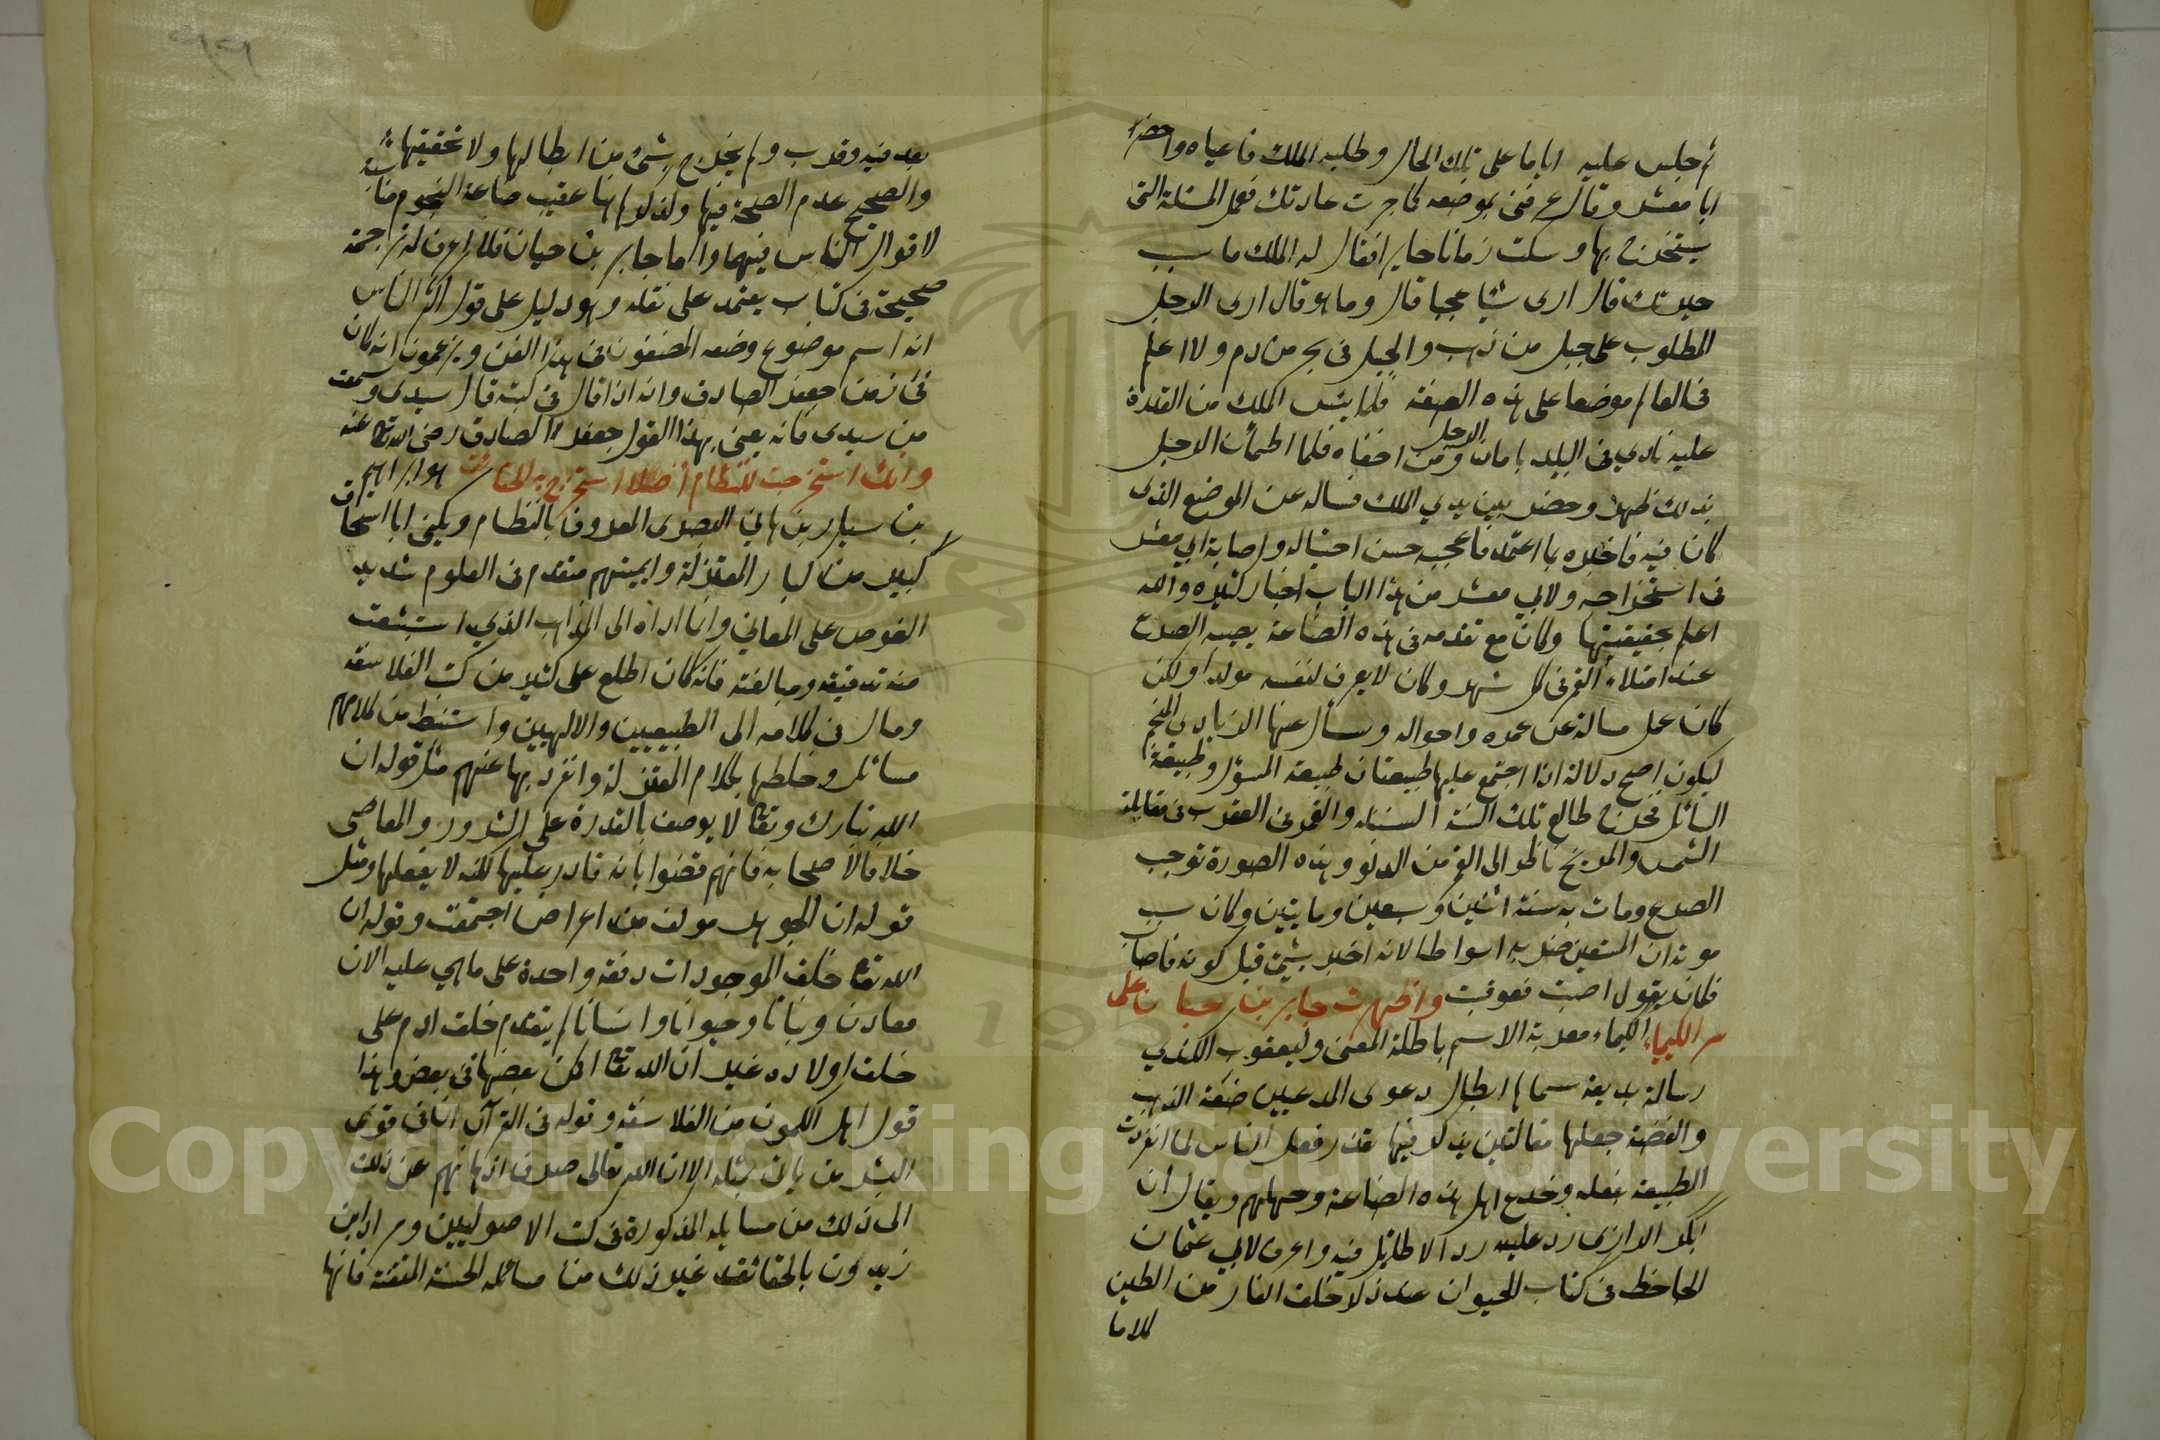 ثم جلس عليه اياما على تلك الحال وطلبه الملك فاعياه واحضر
ابا معشر وقال عرفنى بموضعه كما جرت عادتك فعمل المسئلة التى
يستخرج بها وسكت زمانا حايرا فقال له الملك ما سبب
حيرتك قال ارى شيا عجيبا قال وما هو قال ارى الرجل
المطلوب على جبل من ذهب والجبل فى بحر من دم ولا اعلم
فى العالم موضعا على هذه الصفة فلما يئس الملك من القدرة
عليه نادى فى البلد بامان الرجل ومن اخفاه فلما اطمأن الرجل
بذلك ظهر وحضر بين يدي الملك فساله عن الموضع الذى
كان فيه فاخبره بما اعتمد فاعجبه حسن احتياله واصابة ابي معشر
فى استخراجه ولابي معشر من هذا الباب اخبار كثيره والله
اعلم بحقيقتها وكان مع تقدمه فى هذه الصناعة يصيبه الصرع
عند امتلاء القمر فى كل شهر وكان لا يعرف لنفسه مولدا ولكن
كان عمل مسالة عن عمره واحواله وسأل عنها الزيادى المنجم
ليكون اصح دلالة اذا اجتمع عليها طبيعتان طبيعة المسؤل وطبيعة
السائل فخرج طالع تلك السنة السنبله والقمر فى العقرب فى مقابلة
الشمس والمريخ ناظر الى القمر من الدلو وهذه الصورة توجب
الصرع ومات به سنة اثنين وسبعين ومايتين وكان سبب
موته ان المستعين ضربه اسواطا لانه اخبر بشئ قبل كونه فاصاب
فكان يقول اصبت فعوقبت واظهرت جابر بن حيان على
سر الكيمياء الكيمياء معربة الاسم باطلة المعنى وليعقوب الكندي
رسالة بديعة سماها ابطال دعوى المدعيين صنعة الذهب
والفضة جعلها مقالتين يذكر فيها تعذر فعل الناس لما انفردت
الطبيعة بفعله وخدع اهل هذه الصناعة وجهلهم ويقال ان
ابا بكر الرازى رد عليه ردا لا طائل فيه واعرف لابي عثمان
الجاحظ فى كتاب الحيوان عند ذكر خلف الفار من الطين
كلاما
بعد فيه وقرب ولم يخرج بشئ من ابطالها ولا تحقيقها
والصحيح عدم الصحة فيها ولذكرها عقيب صناعة النجوم مناسبة
لاقوال الناس فيهما واما جابر بن حيان فلا اعرف له ترجمة
صحيحة فى كتاب يعتمد على نقله وهو دليل على قول اكثر الناس
انه اسم موضوع وضعه المصنفون فى هذا الفن ويزعمون انه كان
فى زمن جعفر الصادق وانه اذا قال فى كتبه قال سيدى وسمعت
من سيدى فانه يعنى بهذا القول جعفر الصادق رضى الله تعالى عنه
وانك استخرجت للنظام اصلا استخرج به الحقائق هو ابراهيم
بن سيار بن هاني البصرى المعروف بالنظام ويكنى ابا اسحاق
كبير من كبار المعتزلة وايمتهم متقدم فى العلوم شديد
الغوص على المعاني وانما اداه الى المذاهب الذي استبشعت
منه تدقيقه ومبالغته فانه كان اطلع على كثير من كتب الفلاسفة
ومال فى كلامه الى الطبيعيين والالهيين واستنبط من كلامهم
مسائل وخلطها بكلام المعتزلة وانفرد بها عنهم مثل قوله ان
الله تبارك وتعالى لا يوصف بالقدرة على الشرور والمعاصى
خلافا لاصحابه فانهم قضوا بانه قادر عليها لكنه لا يفعلها ومثل
قوله ان الجوهر مولف من اعراض اجتمعت وقوله ان
الله تعالى خلق الموجودات دفعة واحدة على ما هي عليه الان
معادن ونباتا وحيوانا وانسانا لم يتقدم خلف ادم على
خلف اولاده غير ان الله تعالى اكمن بعضها فى بعض وهذا
قول اهل الكمون من الفلاسفة وقوله فى القرآن ان فى قوى
البشر من يات بمثله الا ان الله تعالى صرف اذهانهم عن ذلك
الى ذلك من مسايله المذكورة فى كتب الاصوليين ومراد ابن
زيدون بالحقائق غير ذلك من مسائله الحسنة المتقنة فانها
Copyright © King Saud University